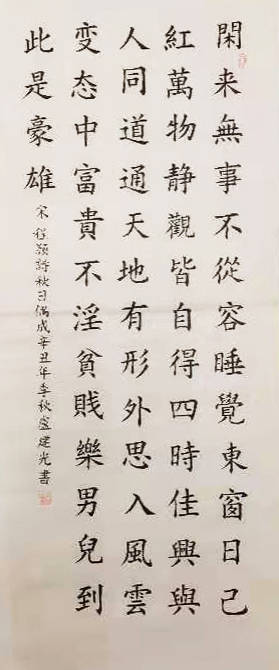 閑来無事不從容睡覺東窗日已
紅萬物静觀皆自得四時佳興與
人同道通天地有形外思入風雲
变态中富貴不淫貧賤樂男兒到
此是豪雄
宋程颢詩秋日偶成辛丑年季秋盧建光書